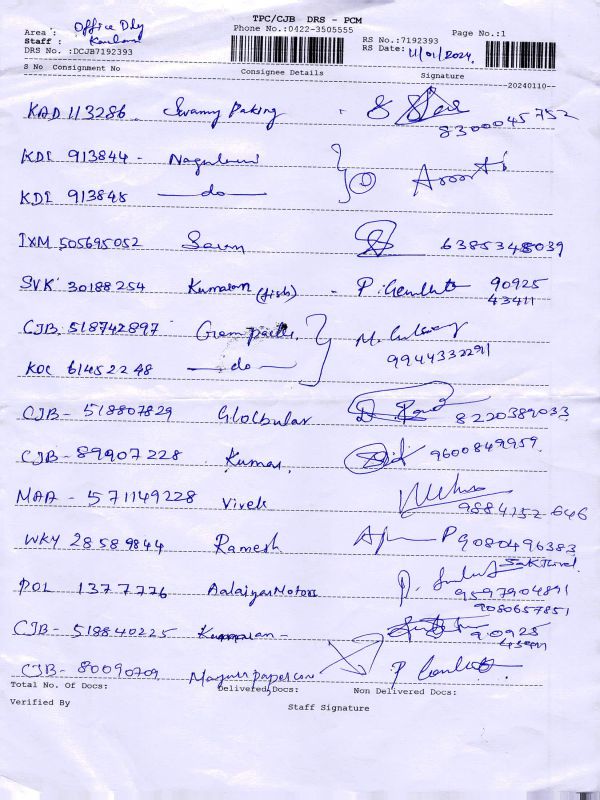 TPC/CJB DRS - PCM
Area : Office Dly
Phone No.:0422-3505555
Page No.:1
Staff :
RS No.:7192393
DRS No. :DCJB7192393
RS Date: 11/01/2024
S No Consignment No Consignee Details Signature
--20240110--
KAD 113286 Swamy Paking
8300045752
KDI 913844 - 
KDI 913845 — do —
IXM 505695052 6385348039
SVK 30188254 Kumaran (fish) - P. 90925
43411
CJB. 518742897 M.
KOC 614522248 — do — 9944332291
CJB - 518807829 Globular
8220389033
CJB - 89907228 Kumar 9600849959
MAA - 571149228 Vivek
9884152646
WKY 28589844 Ramesh P 9080496383
Sakthivel
POL 1377776 Aalaiyar Motors 9597904891
9080657851
CJB - 518840225 90925
43411
CJB - 80090709 P
Total No. Of Docs: Delivered Docs: Non Delivered Docs:
Verified By
Staff Signature